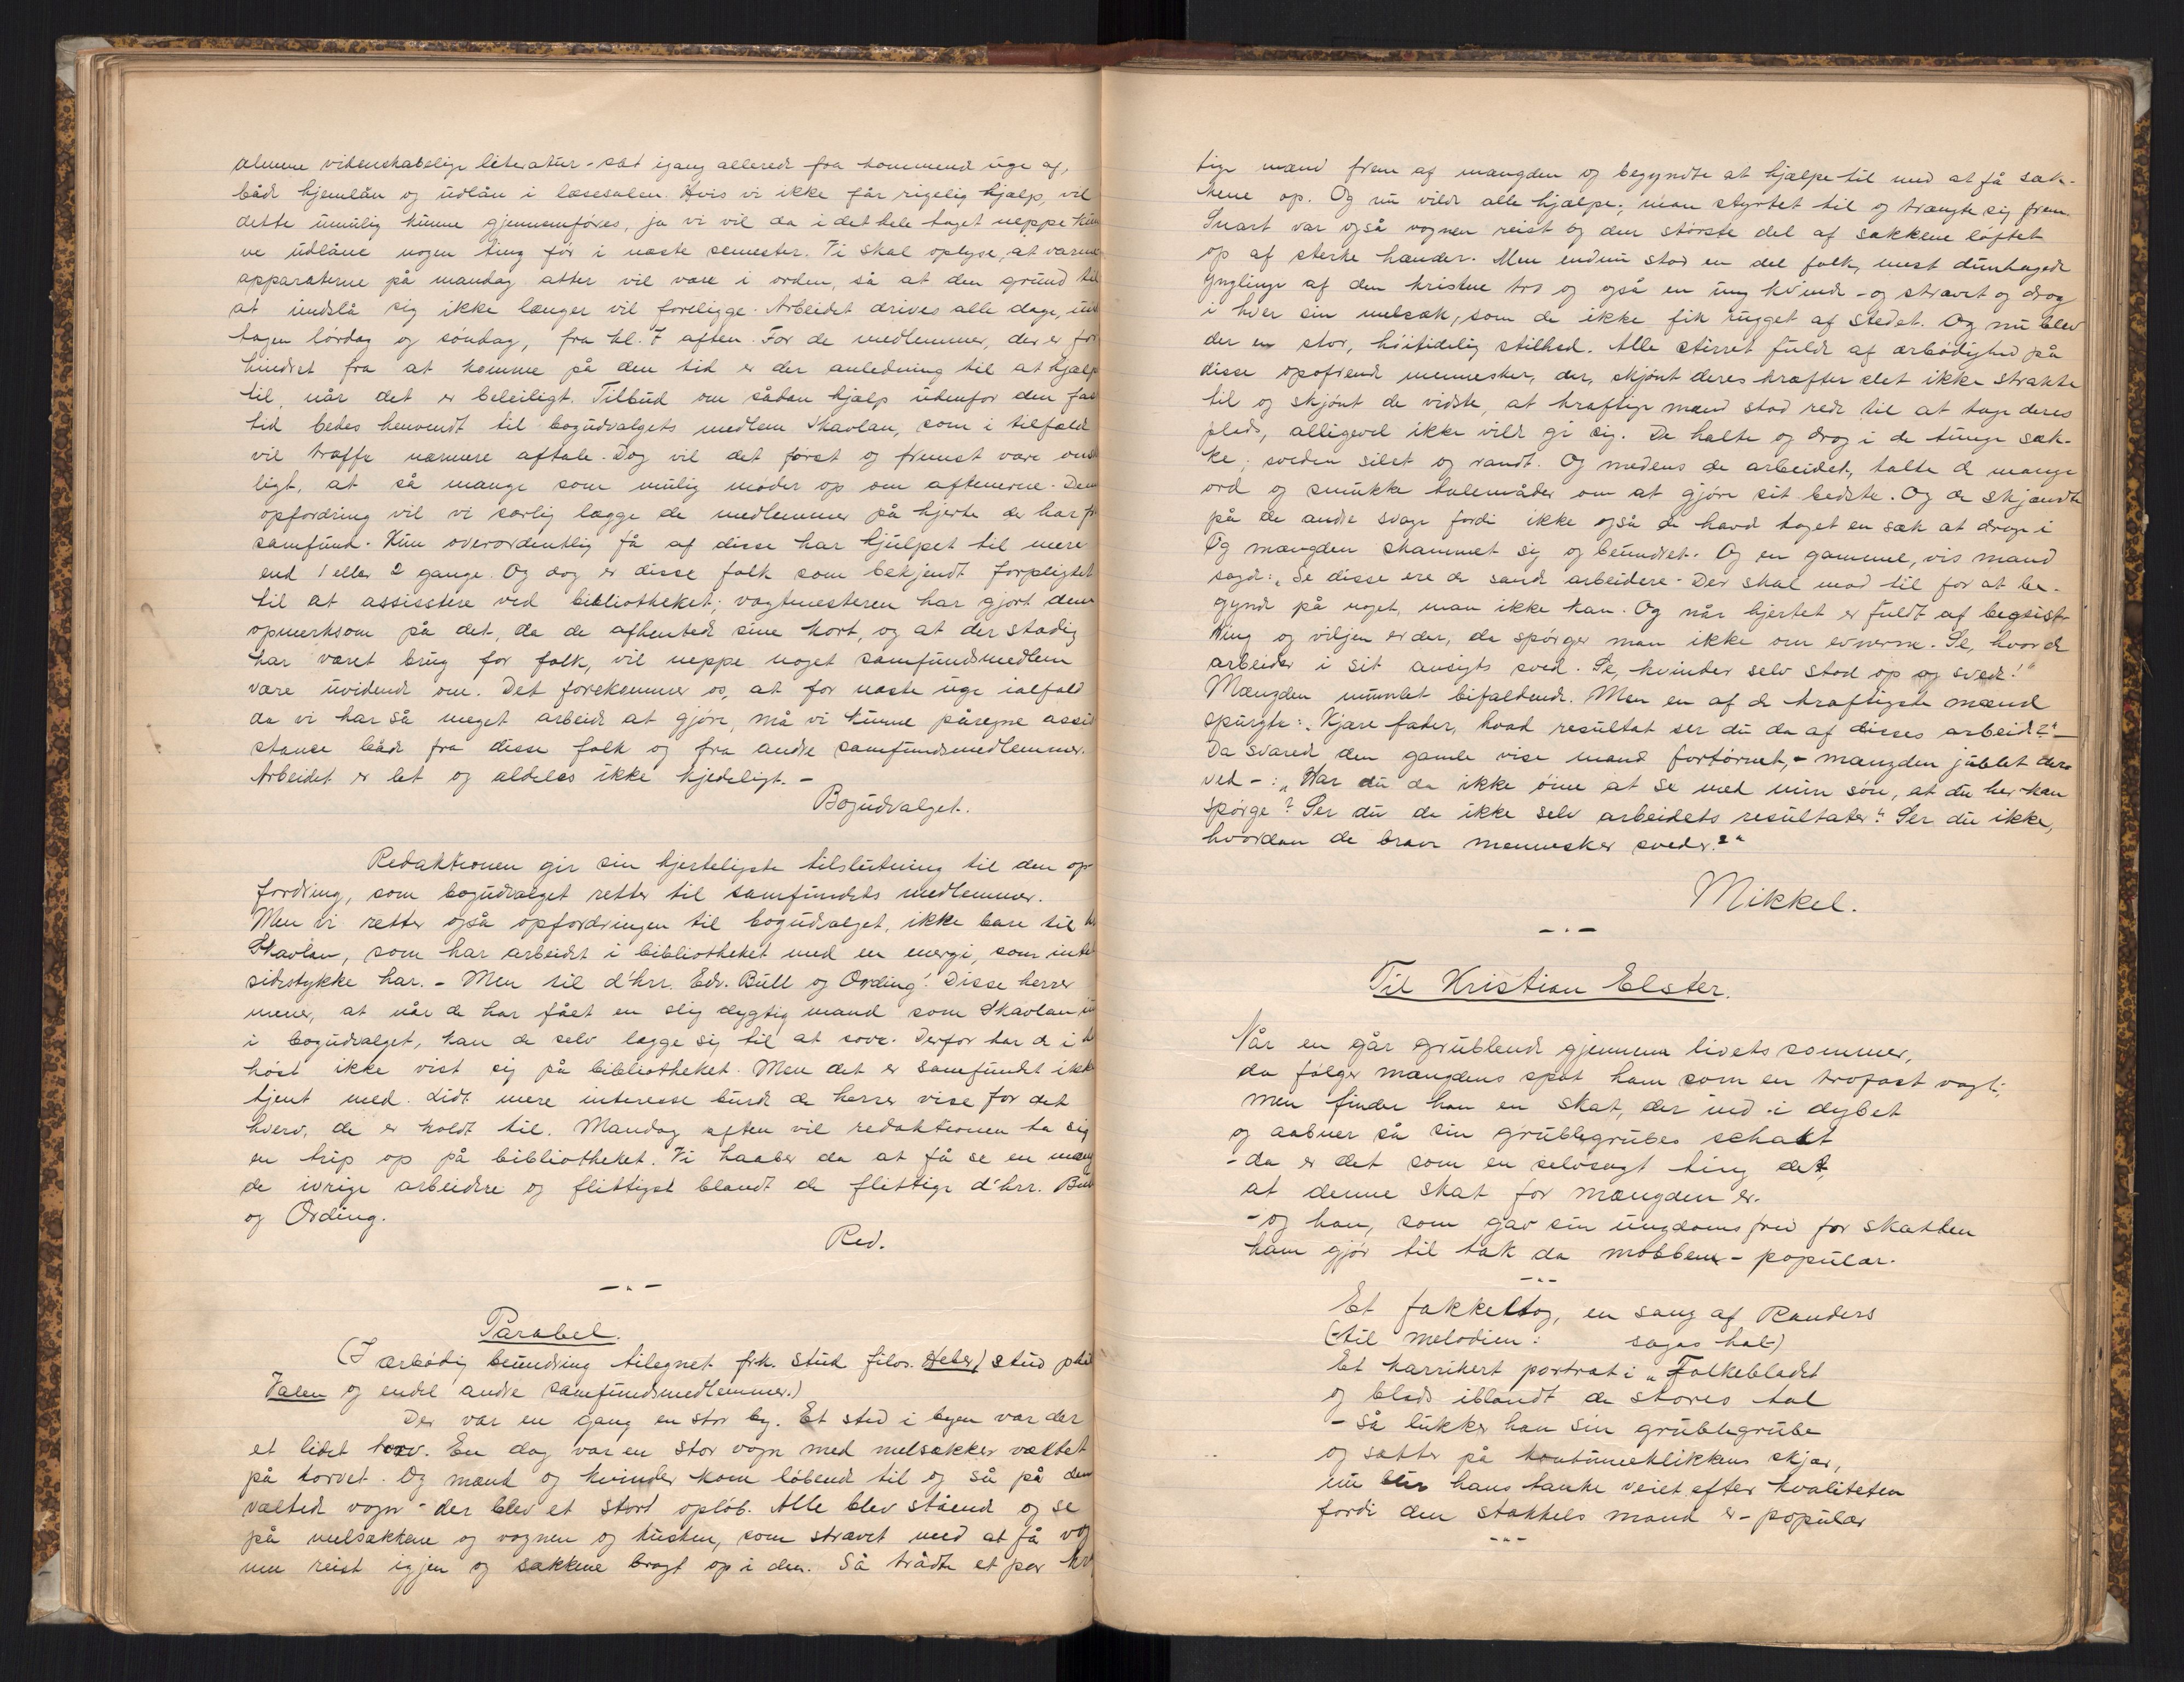 almene videnskabelige literatur - sat igang allerede fra kommende uge af,
både hjemlån og udlån i læsesalen. Hvis vi ikke får rigelig hjælp, vil
dette umulig kunne gjennemføres, ja vi vil da i det hele taget neppe kun
ne udlåne nogen ting før i næste semester. Vi skal oplyse, at varme
apparaterne på mandag atter vil være i orden, så at den grund til
at undslå sig ikke længer vil foreligge. Arbeidet drives alle dage, und
tagen lørdag og søndag, fra kl. 7 aften. For de medlemmer, der er for
hindret fra at komme på den tid er der anledning til at hjælp
til, når det er beleiligt. Tilbud om sådan hjælp udenfor den fas
tid bedes henvendt til bogudvalgets medlem Skavlan, som i tilfælde
vil træffe nærmere aftale. Dog vil det først og fremst være ønsk
ligt, at så mange som mulig møder op om aftenerne. Den
opfordring vil vi særlig lægge de medlemmer på hjerte der har fr
samfund. Kun overordentlig få af disse har hjulpet til mere
end 1 eller 2 gange. Og dog er disse folk som bekjendt forpligtet
til at assisstere ved bibliotheket; vagtmesteren har gjort dem
opmerksom på det, da de afhentede sine kort, og at der stadig
har været brug for folk, vil neppe noget samfundsmedlem
være uvidende om. Det forekommer os, at for næste uge ialfald
da vi har så meget arbeide at gjøre, må vi kunne påregne assi
stance både fra disse folk og fra andre samfundsmedlemmer.
Arbeidet er let og aldeles ikke kjedeligt. -
Bogudvalget.
Redaktionen gir sin hjerteligste tilslutning til den op-
fordring, som bogudvalget retter til samfundets medlemmer.
Men vi retter også opfordringen til bogudvalget, ikke bare til
Skavlan, som har arbeidet i bibliotheket med en energi, som intet
sidestykke har. - Men til d'hrr. Edv. Bull og Ording! Disse herrer
mener, at når de har fået en slig dygtig mand som Skavlan in
i bogudvalget, kan de selv lægge sig til at sove. Derfor har de i
høst ikke vist sig på bibliotheket. Men det er samfundet ikke
tjent med. Lidt mere interesse burde de herrer vise for det
hverv, de er valdt til. Mandag aften vil redaktionen ta sig
en trip op på bibliotheket. Vi haaber da at få se en mæng
de ivrige arbeidere og flittigst blandt de flittige d'hrr. Bull
og Ording.
Red.
Parabel.
(I ærbødig beundring tilegnet frk. stud filos. Heber / stud phil
Valen og endel andre samfundsmedlemmer.)
Der var en gang en stor by. Et sted i byen var der
et lidet torv. En dag var en stor vogn med melsækker væltet
på torvet. Og mænd og kvinder kom løbende til og så på den
væltede vogn - der blev et stort opløb. Alle blev stående og se
på melsækkene og vognen og kusken, som strævet med at få vog
nen reist igjen og sækkene bragt op i den. Så trådte et par kr
tige mænd frem af mængden og begyndte at hjælpe til med at få sæk-
kene op. Og nu vilde alle hjælpe; man styrtet til og trængte sig frem
Snart var også vognen reist og den største del af sækkene løftet
op af sterke hænder. Men endnu stod en del folk, mest dunhagede
ynglinge af den kristne tro og også en ung kvinde - og strævet og drog
i hver sin melsæk, som de ikke fik rugget af stedet. Og nu blev
der en stor, høitidelig stilhed. Alle stirret fulde af ærbødighed på
disse opofrende mennesker, der, skjønt deres kræfter slet ikke strakte
til og skjønt de vidste, at kraftige mænd stod rede til at tage deres
plads, alligevel ikke vilde gi sig. De halte og drog i de tunge sæk-
ke; sveden silet og randt. Og medens de arbeidet, talte de mange
ord og smukke talemåder om at gjøre sit bedste. Og de skjændte
på de andre svage fordi ikke også de havde taget en sæk at drage i
Og mængden skammet sig og beundret. Og en gammel, vis mand
sagde: „Se disse ere de sande arbeidere. Der skal mod til for at be-
gynde på noget, man ikke kan. Og når hjertet er fuldt af begeist-
ring og viljen er der, da spørger man ikke om evnerne. Se, hvor de
arbeider i sit ansigts sved. Se, kvinder selv stod op og sved!“
Mængden mumlet bifaldende. Men en af de kraftigste mænd
spurgte: „Kjære fader, hvad resultat ser du da af disses arbeide?“ -
Da svarede den gamle vise mand fortørnet, - mængden jublet der
ved - : „Har du da ikke øine at se med min søn, at du her kan
spørge? Ser du da ikke selv arbeidets resultater? Ser du ikke,
hvordan de brave mennesker sveder?“
Mikkel.
Til Kristian Elster.
Når en går grublende gjennem livets sommer,
da følger mængdens spot ham som en trofast vagt;
men finder han en skat, der ind i dybet
og aabner så sin grublegrubes schakt
- da er det som en selvsagt ting det,
at denne skat for mængden er.
- og han, som gav sin ungdoms fred for skatten
ham gjør til tak da mobben - populær.
Et fakkeltog, en sang af Randers
(til melodien: sagas hal-)
Et karrikert portræt i „Folkebladet
og plads iblandt de stores tal
- så lukker han sin grublegrube
og sætter på skjær,
nu blir hans tanke veiet efter kvaliteten
fordi den stakkels mand er - populær